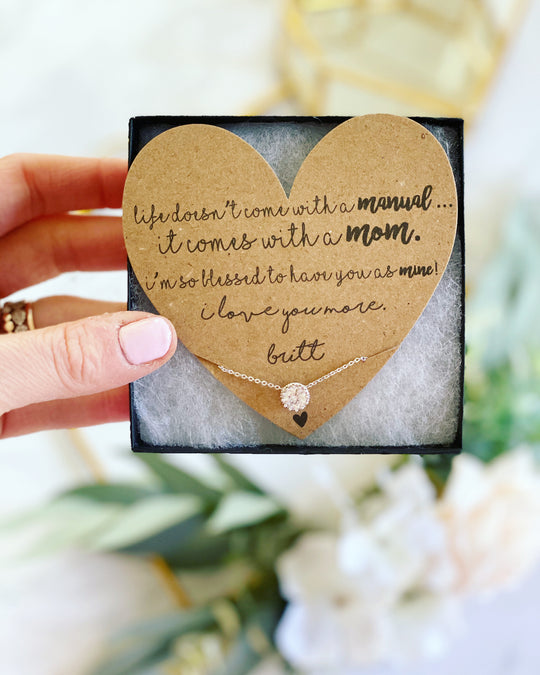 life doesn't come with a manual...
it comes with a mom.
i'm so blessed to have you as mine!
i love you more.
britt